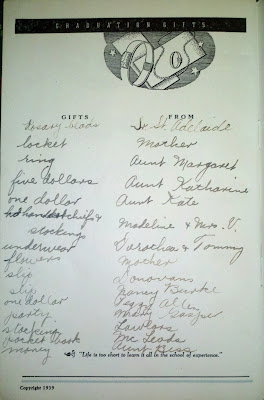 GRADUATION GIFTS
GIFTS FROM
Rosary beads Sr. St. Adelaide
locket Mother
ring Aunt Margaret
five dollars Aunt Katharine
one dollar Aunt Kate
handkerchiefs & Madeline & Mrs. V.
stockings
underwear Dorothea & Tommy
flowers Mother
slip Donovans
slip Nancy Burke
one dollar Peggy Allen
party Mary Gasper
stockings Lawlors
pocket book Mc Leods
money Aunt Bess
"Life is too short to learn it all in the school of experience."
Copyright 1939